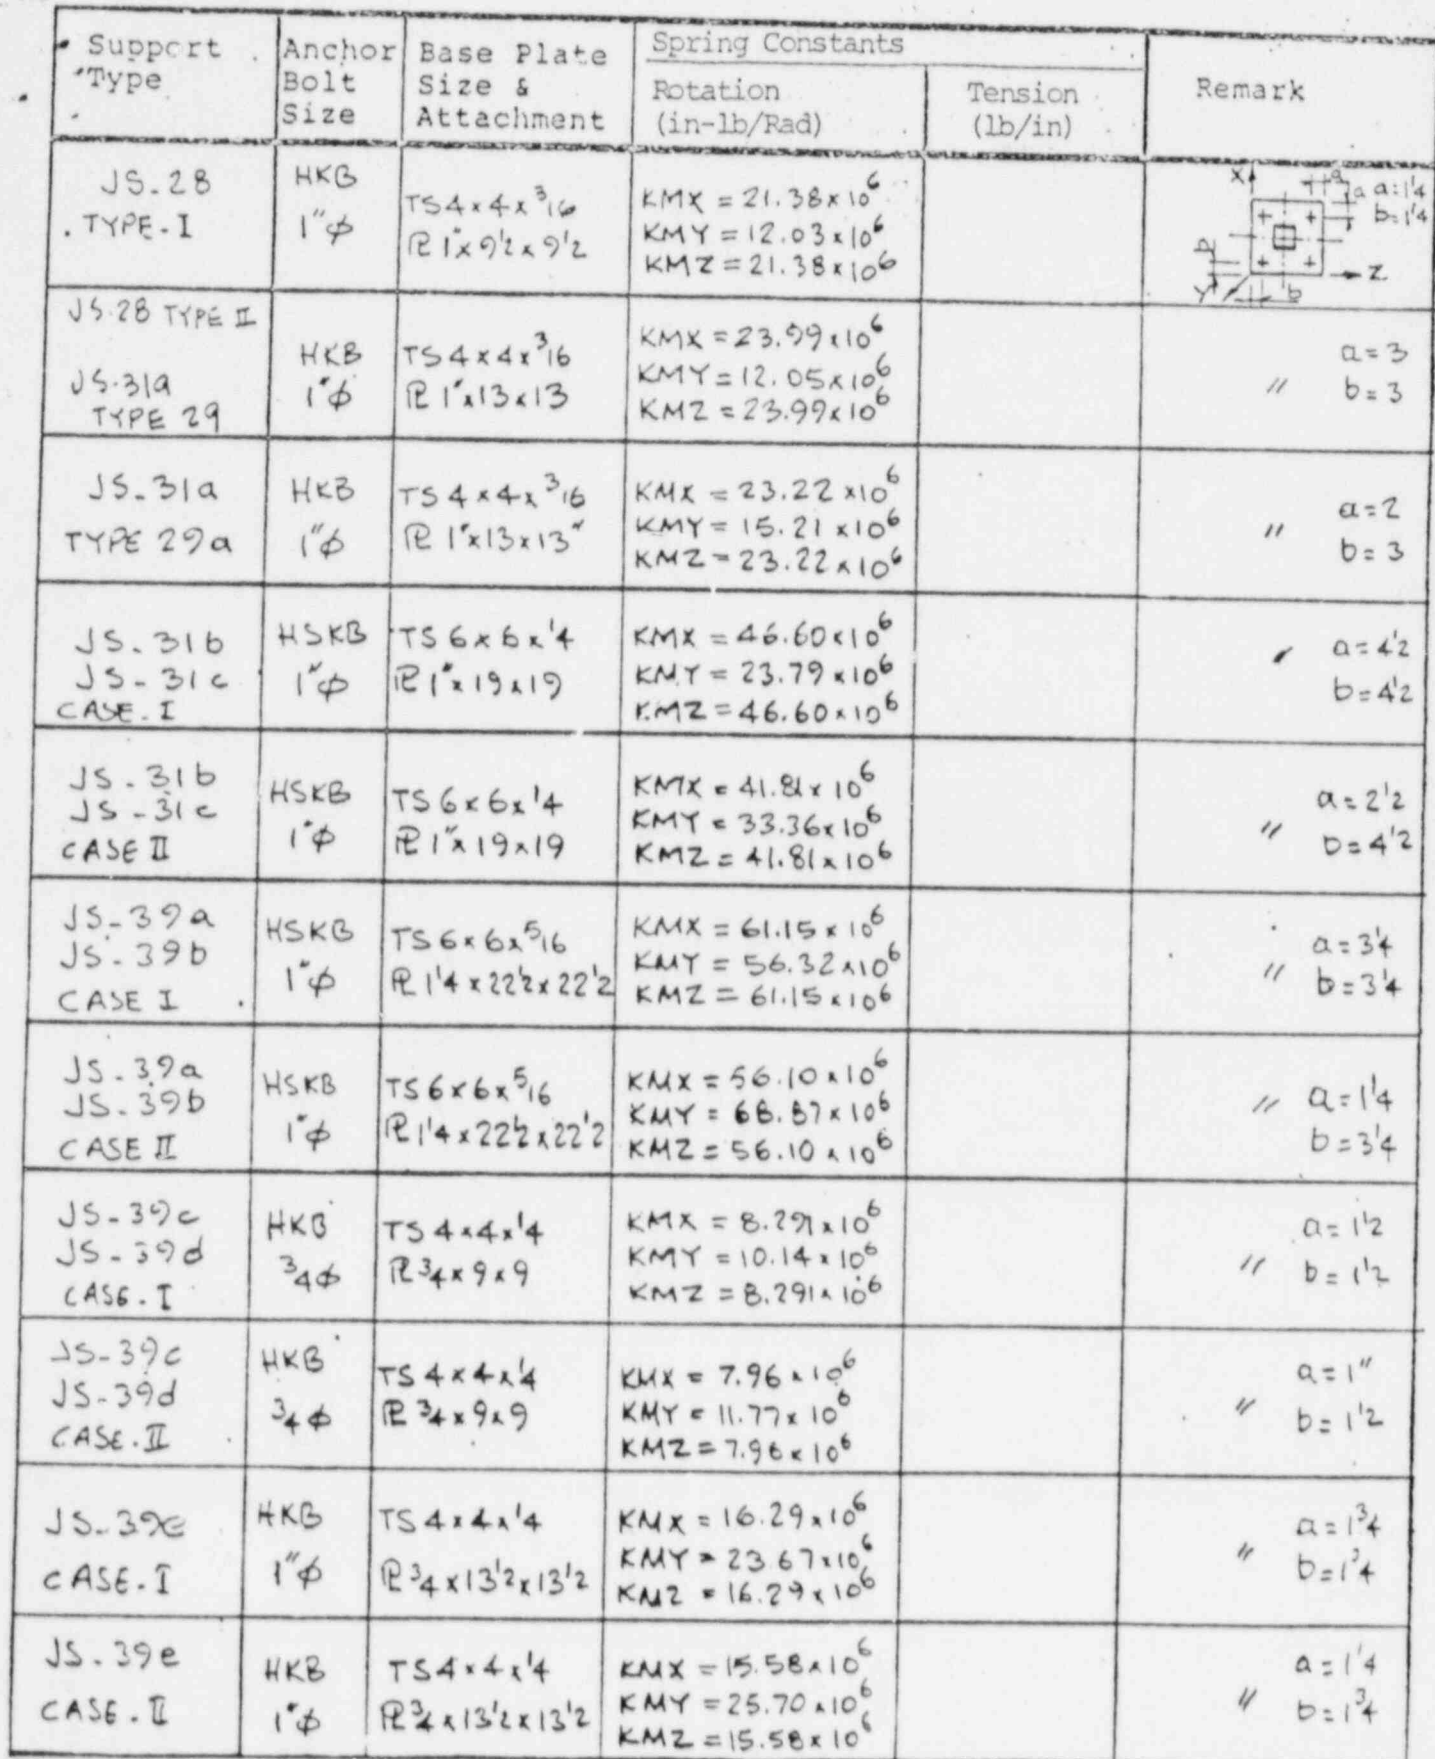 Support Type
Anchor Bolt Size
Base Plate Size & Attachment
Spring Constants
Rotation (in-lb/Rad)
Tension (lb/in)
Remark
JS-28
TYPE-I
HKB
1"φ
TS4x4x3/16
PL 1"x9 1/2x9 1/2
KMX = 21.38x10^6
KMY = 12.03x10^6
KMZ = 21.38x10^6
X
a
a
a=1 1/4
b=1 1/4
b
Z
Y
b
JS-28 TYPE II
JS-31a
TYPE 29
HKB
1"φ
TS4x4x3/16
PL 1"x13x13
KMX = 23.99x10^6
KMY = 12.05x10^6
KMZ = 23.99x10^6
" a=3
b=3
JS-31a
TYPE 29a
HKB
1"φ
TS4x4x3/16
PL 1"x13x13"
KMX = 23.22x10^6
KMY = 15.21x10^6
KMZ = 23.22x10^6
" a=2
b=3
JS-31b
JS-31c
CASE-I
HSKB
1"φ
TS6x6x1/4
PL 1"x19x19
KMX = 46.60x10^6
KMY = 23.79x10^6
KMZ = 46.60x10^6
" a=4 1/2
b=4 1/2
JS-31b
JS-31c
CASE II
HSKB
1"φ
TS6x6x1/4
PL 1"x19x19
KMX = 41.81x10^6
KMY = 33.36x10^6
KMZ = 41.81x10^6
" a=2 1/2
b=4 1/2
JS-39a
JS-39b
CASE I
HSKB
1"φ
TS6x6x5/16
PL 1 1/4x22 1/2x22 1/2
KMX = 61.15x10^6
KMY = 56.32x10^6
KMZ = 61.15x10^6
" a=3 1/4
b=3 1/4
JS-39a
JS-39b
CASE II
HSKB
1"φ
TS6x6x5/16
PL 1 1/4x22 1/2x22 1/2
KMX = 56.10x10^6
KMY = 68.87x10^6
KMZ = 56.10x10^6
" a=1 1/4
b=3 1/4
JS-39c
JS-39d
CASE-I
HKB
3/4φ
TS4x4x1/4
PL 3/4x9x9
KMX = 8.291x10^6
KMY = 10.14x10^6
KMZ = 8.291x10^6
" a=1 1/2
b=1 1/2
JS-39c
JS-39d
CASE-II
HKB
3/4φ
TS4x4x1/4
PL 3/4x9x9
KMX = 7.96x10^6
KMY = 11.77x10^6
KMZ = 7.96x10^6
" a=1"
b=1 1/2
JS-39e
CASE-I
HKB
1"φ
TS4x4x1/4
PL 3/4x13 1/2x13 1/2
KMX = 16.29x10^6
KMY = 23.67x10^6
KMZ = 16.29x10^6
" a=1 3/4
b=1 3/4
JS-39e
CASE-II
HKB
1"φ
TS4x4x1/4
PL 3/4x13 1/2x13 1/2
KMX = 15.58x10^6
KMY = 25.70x10^6
KMZ = 15.58x10^6
" a=1 1/4
b=1 3/4